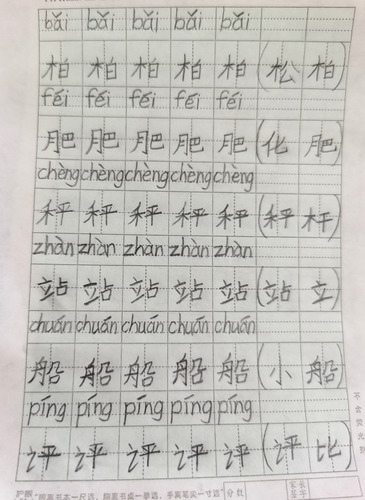 bǎi bǎi bǎi bǎi bǎi
柏 柏 柏 柏 柏 (松 柏)
féi féi féi féi féi
肥 肥 肥 肥 肥 (化 肥)
chèng chèng chèng chèng chèng
秤 秤 秤 秤 秤 (秤 杆)
zhàn zhàn zhàn zhàn zhàn
站 站 站 站 站 (站 立)
chuán chuán chuán chuán chuán
船 船 船 船 船 (小 船)
píng píng píng píng píng
评 评 评 评 评 (评 比)
"眼离书本一尺远，胸离书桌一拳远，手离笔尖一寸远" 分数 家长签字